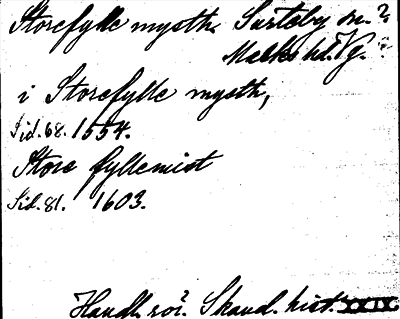 Storefylle mysth. Surteby sn.?
Marks hd. Vg.
i Storefylle mysth,
Sid. 68. 1554.
Store fyllemist
Sid. 81. 1603.
Handl. rör. Skand. hist. XXIX